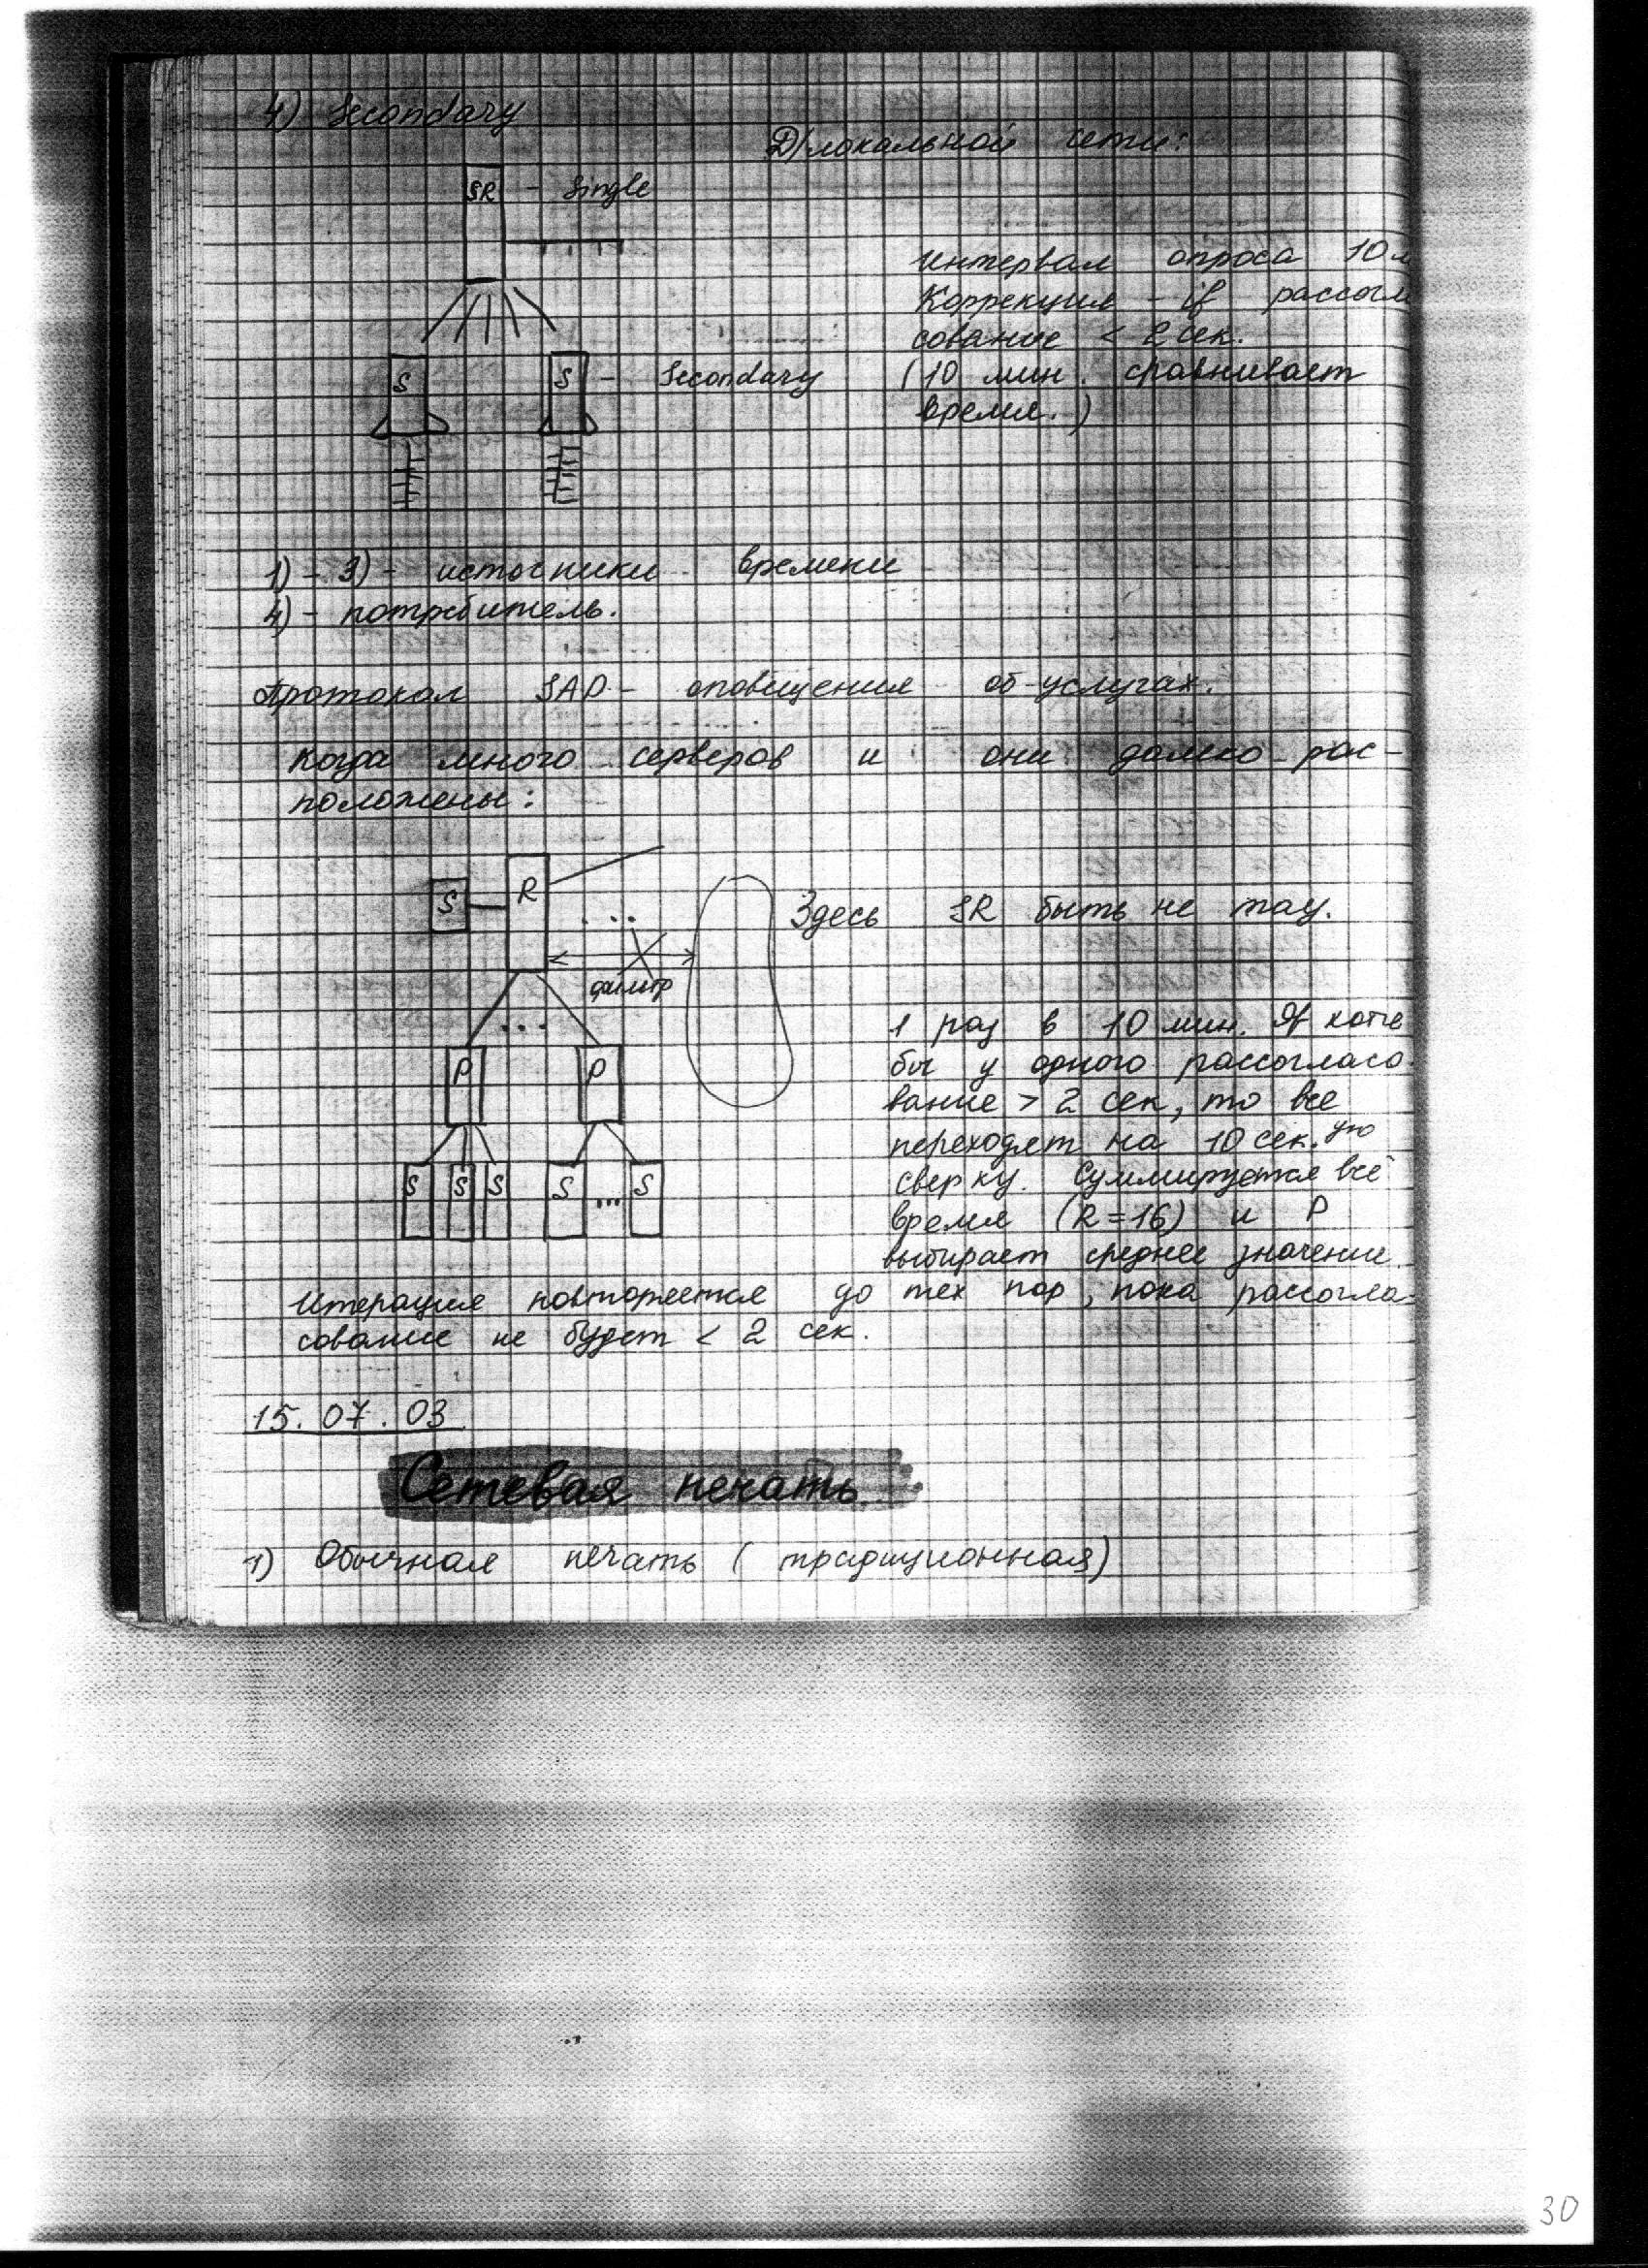 4) Secondary
Д/локальной сети:
SR - Single
Интервал опроса 10 м
Коррекция - if рассогл
сование < 2 сек.
S S - Secondary (10 мин. сравнивает
время.)
1) - 3) - источники времени
4) - потребитель.
Протокол SAP - оповещения об услугах.
Когда много серверов и они далеко рас-
положены:
S R
Здесь SR быть не may.
фильтр
1 раз в 10 мин. If хотя
P P
бы у одного рассогласо
вание > 2 сек, то все
переходят на 10 сек.ую
S S S S ... S
сверку. Суммируется всё
время (R=16) и P
выбирает среднее значение.
Итерация повторяется до тех пор, пока рассогла-
сование не будет < 2 сек.
15.07.03
Сетевая печать
1) Обычная печать (традиционная)
30